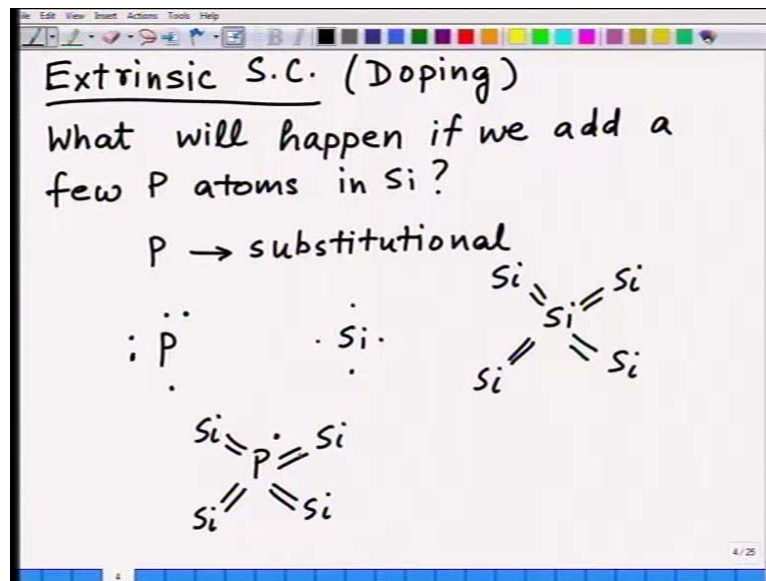 File Edit View Insert Actions Tools Help
B I
Extrinsic S.C. (Doping)
What will happen if we add a
few P atoms in Si?
P → substitutional
Si Si
Si
Si Si
:P̈. ·Si·
Si Si
P
Si Si
4/25
4